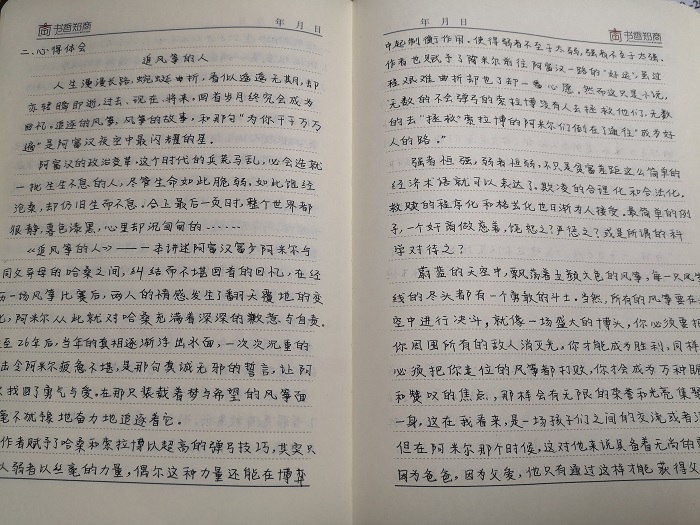 书香知商
年 月 日
二.心得体会
追风筝的人
人生漫漫长路,蜿蜒曲折,看似遥遥无期,却
亦转瞬即逝,过去、现在、将来,回首岁月终究会成为
回忆。追逐的风筝,风筝的故事,和那句“为你千千万万
遍”是阿富汗夜空中最闪耀的星。
阿富汗的政治变革,这个时代的兵荒马乱,必会造就
一批生生不息的人,尽管生命如此脆弱,如此饱经
沧桑,却仍旧生而不息。合上最后一页时,整个世界都
很静,景色漆黑,心里却沉甸甸的……
《追风筝的人》——一本讲述阿富汗富少阿米尔与
同父异母的哈桑之间,纠结而不堪回首的回忆,在经
历一场风筝比赛后,两人的情感发生了翻天覆地的变
化,阿米尔从此就对哈桑充满着深深的歉意与自责。
至26年后,当年的真相逐渐浮出水面,一次次沉重的
击令阿米尔疲惫不堪,是那句真诚无邪的誓言,让阿
找回了勇气与爱。在那只装载着梦与希望的风筝面
毫不犹豫地奋力地追逐着它。
作者赋予了哈桑和索拉博以超高的弹弓技巧,其实只
人弱者以丝毫的力量,偶尔这种力量还能在博弈
年 月 日
书香知商
中起制衡作用。使得弱者不至于太弱,强者不至于太强。
作者也赋予了阿米尔前往阿富汗一路的“好运”,虽过
程艰难曲折却也了却一番心愿。然而这只是小说,
无数的不会弹弓的索拉博没有人去拯救他们,无数
的去“拯救”索拉博的阿米尔们倒在了通往“成为好
人的路。”
强者恒强,弱者恒弱,不只是贫富差距这么简单的
经济术语就可以表达了。欺凌的合理化和合法化,
救赎的程序化和格式化也日渐为人接受。最简单的例
子,一个奸商做慈善,饶恕之?严惩之?或是所谓的科
学对待之?
蔚蓝的天空中,飘荡着五颜六色的风筝,每一只风筝
线的尽头都有一个勇敢的斗士。当然,所有的风筝要在
空中进行决斗,就像一场盛大的博头,你必须要把
你周围所有的敌人消灭光,你才能成为胜利,同样
必须把你走位的风筝都打败,你才会成为万种瞩
和赞叹的焦点,那样会有无限的荣誉和光亮集聚
一身,这在我看来,是一场孩子们之间的交流或者
但在阿米尔那个时候,这对他来说具备着无尚的
因为爸爸,因为父爱,他只有通过这样才能获得父